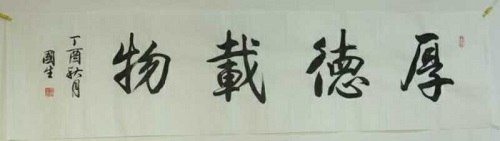 厚德載物
丁酉秋月
國生